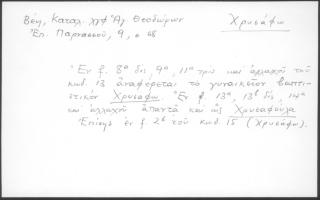 Βέη, Καταλ. χφφ Ἁγ. Θεοδώρων
Χρυσάφω
Ἐπ. Παρνασσοῦ, 9, σ 68
Ἐν f. 8α δίς, 9α, 11α τρίς καὶ ἀλλαχοῦ τοῦ
κωδ. 13 ἀναφέρεται τὸ γυναικεῖον βαπτι-
στικὸν Χρυσάφω. Ἐν f. 13α, 13β δίς, 14α
καὶ ἀλλαχοῦ ἀπαντᾷ καὶ ὡς Χρυσαφούλα
Ἐπίσης ἐν f. 2β τοῦ κωδ. 15 (Χρυσάφω).